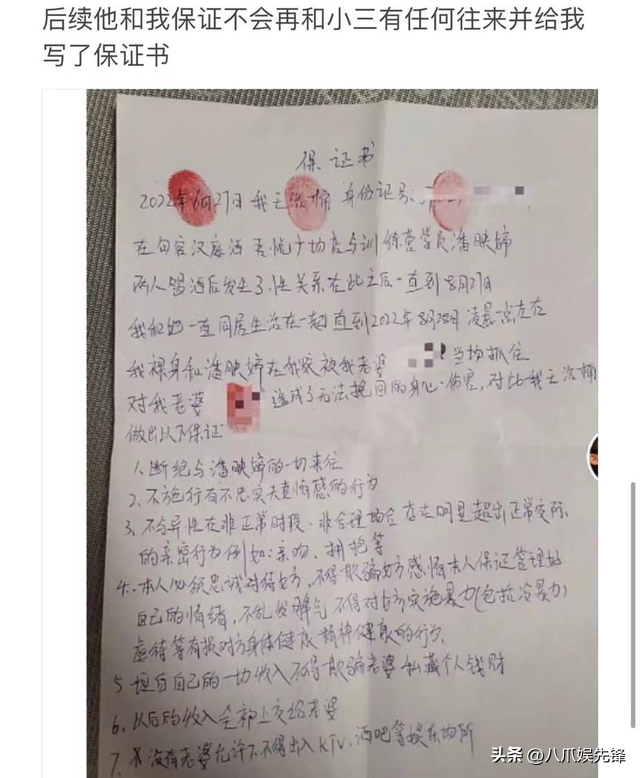 后续他和我保证不会再和小三有任何往来并给我
写了保证书
保证书
2022年6月27日我王 身份证号:
在句容汉庭酒 与训练营学员潘映婷
两人喝酒后发生了性关系在此之后一直到8月27日
我和她一直同居生活在一起直到2022年8月28日凌晨一点左右
我裸身和潘映婷在我家被我老婆 当场抓住
对我老婆 造成了无法挽回的身心伤害,对此我王
做出以下保证
1、断绝与潘映婷的一切来往
2、不施行有不忠实夫妻情感的行为
3、不与异性在非正常时段、非合理场合存在明显超出正常交际
的亲密行为例如:亲吻、拥抱等
4、本人必须忠诚对待对方,不得欺骗对方感情本人保证管理好
自己的情绪,不乱发脾气不得对对方实施暴力(包括冷暴力)
虐待等有损对方身体健康精神健康的行为
5 坦白自己的一切收入不得欺骗老婆私藏个人钱财
6、以后的收入全部上交给老婆
7、 没有老婆允许不得出入KTV、酒吧等娱乐场所
头条 @八爪娱先锋